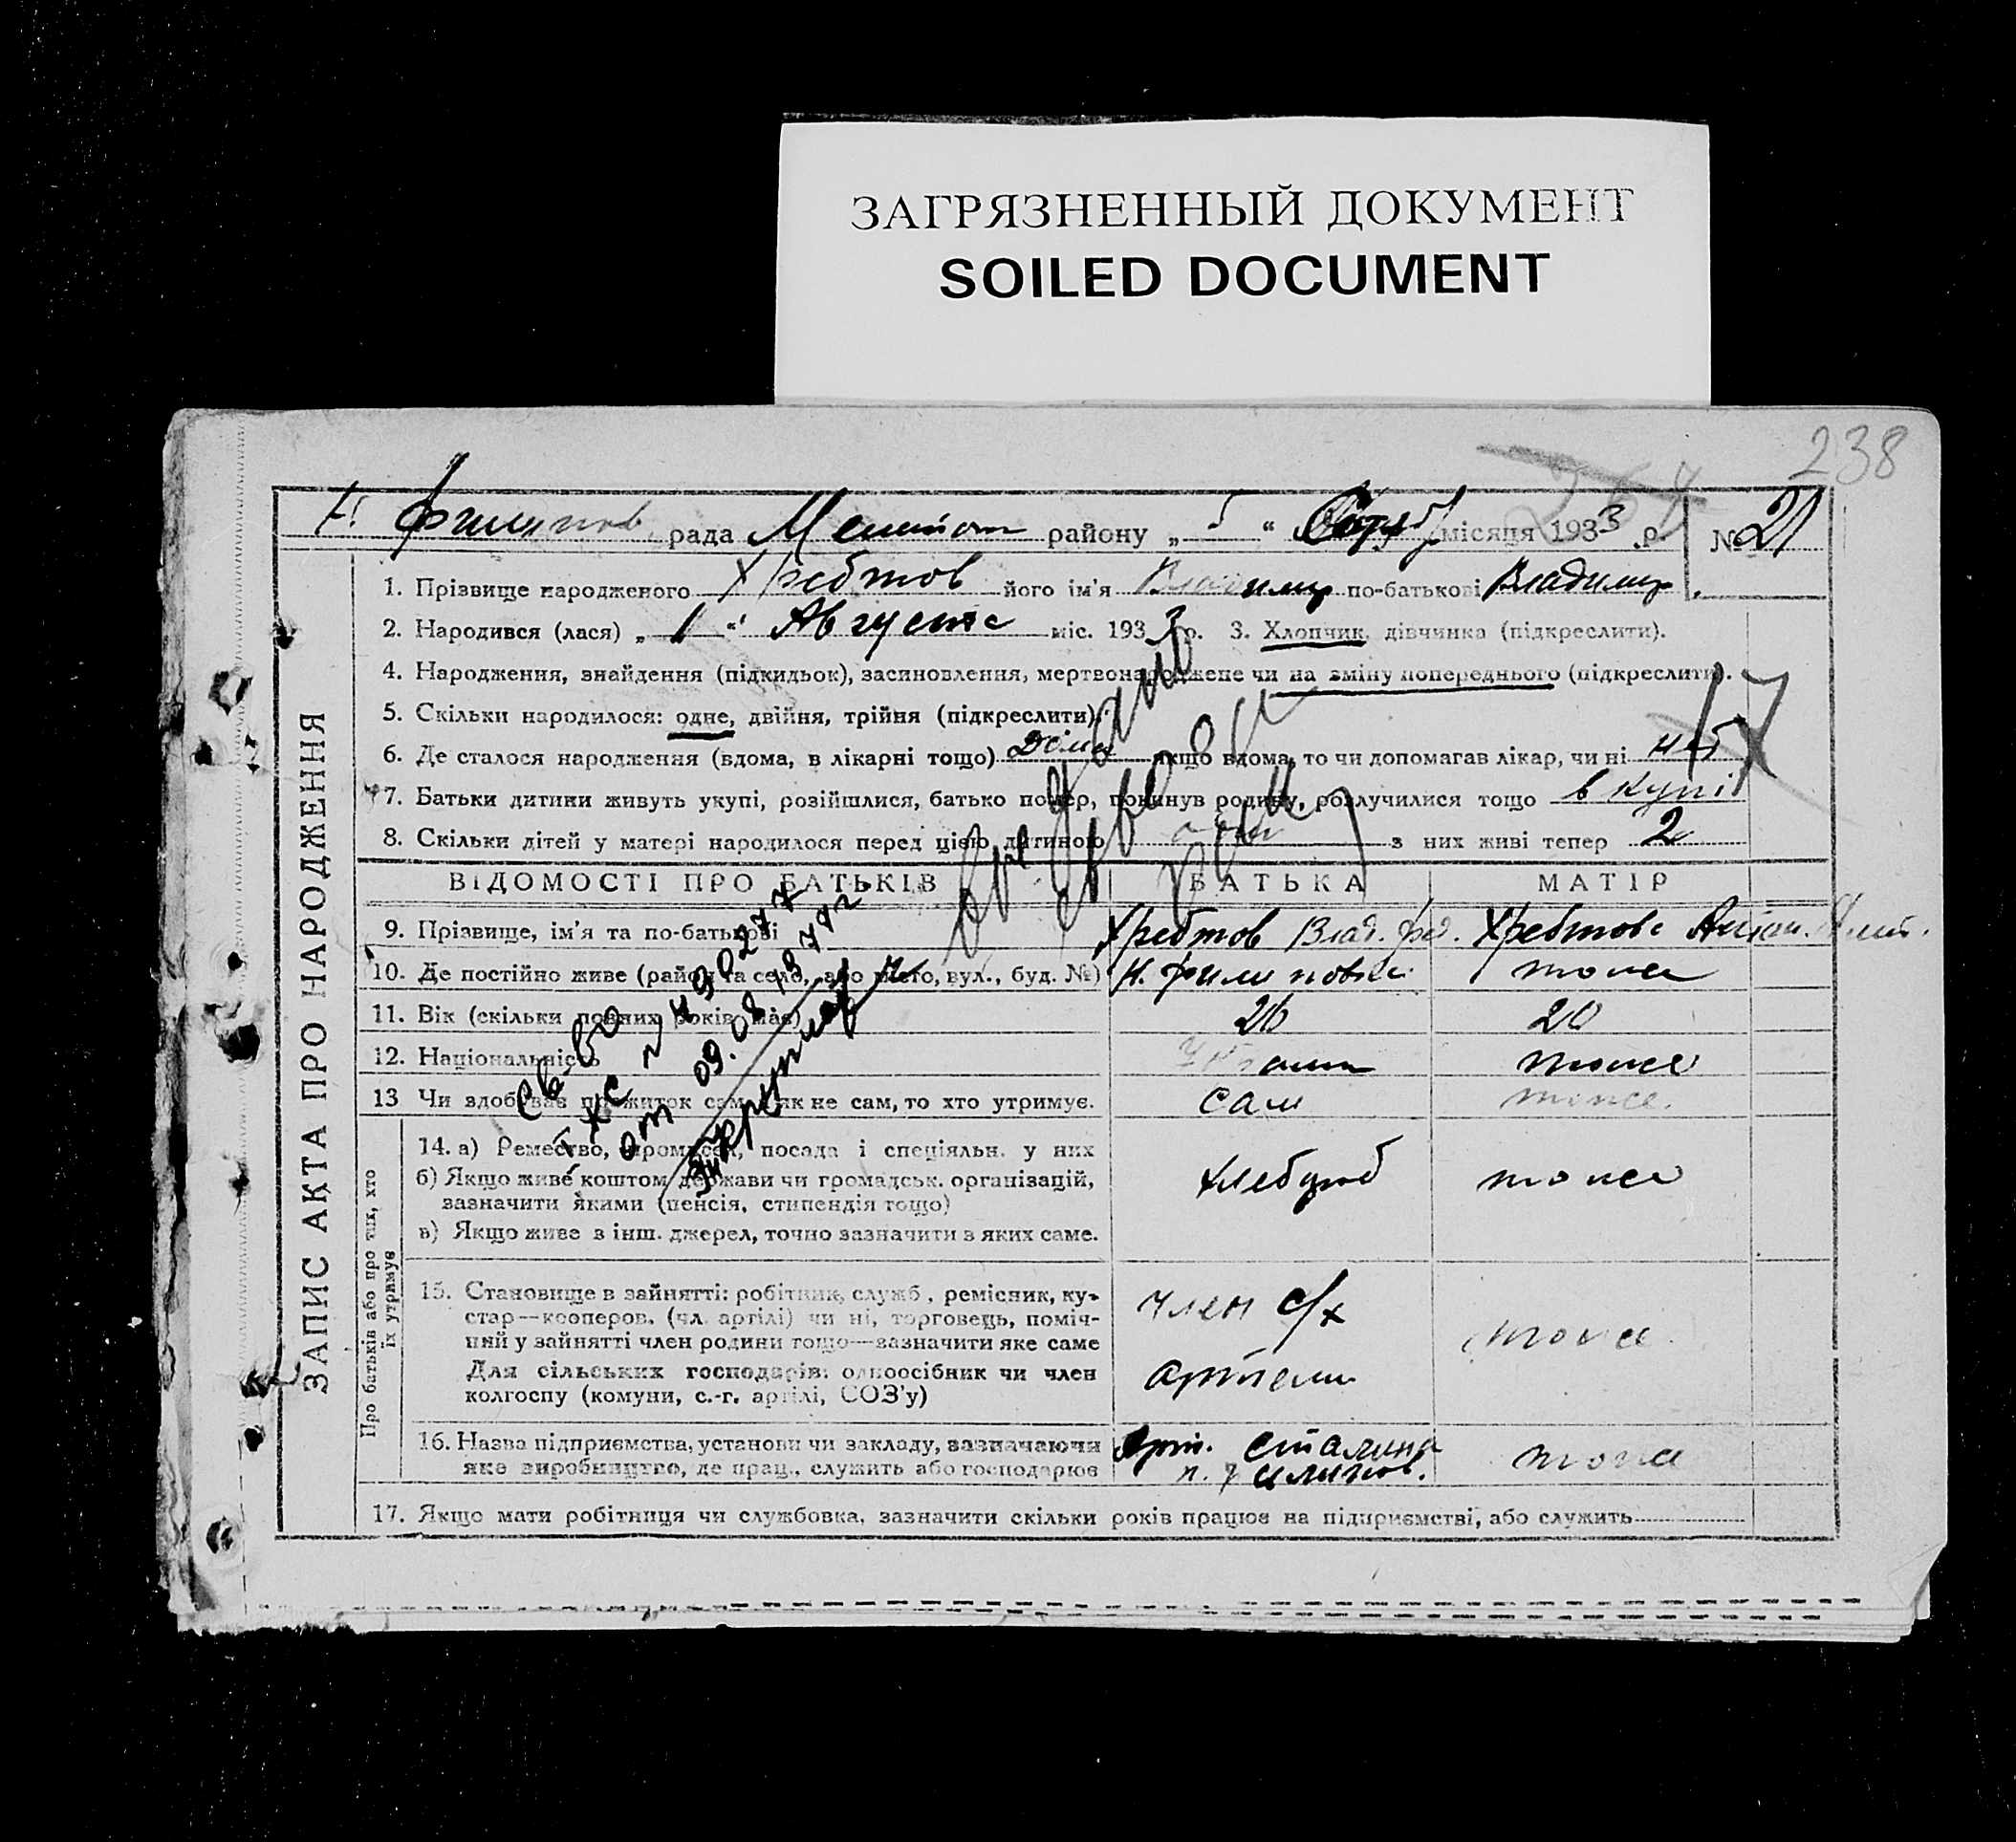 ЗАГРЯЗНЕННЫЙ ДОКУМЕНТ
SOILED DOCUMENT
238
рада Мелитоп району „ “ місяця 1933 р. № 21
1. Прізвище народженого Хребтов його ім'я Владимир по-батькові Владимир
2. Народився (лася) „ 1 “ Августа міс. 1933 р. 3. Хлопчик, дівчинка (підкреслити).
4. Народження, знайдення (підкидьок), засиновлення, мертвонароджене чи на зміну попереднього (підкреслити).
5. Скільки народилося: одне, двійня, трійня (підкреслити).
6. Де сталося народження (вдома, в лікарні тощо) Дома якщо вдома, то чи допомагав лікар, чи ні
7. Батьки дитини живуть укупі, розійшлися, батько помер, покинув родину, розлучилися тощо в купі
8. Скільки дітей у матері народилося перед цією дитиною з них живі тепер 2
ВІДОМОСТІ ПРО БАТЬКІВ БАТЬКА МАТІР
9. Прізвище, ім'я та по-батькові Хребтов Влад. Фед. Хребтова
10. Де постійно живе (район та село, або місто, вул., буд. №) тоже
11. Вік (скільки повних років має) 26 20
12. Національність тоже
13 Чи здобуває прожиток сам, як не сам, то хто утримує. сам тоже.
14. а) Ремество, промисел, посада і спеціяльн. у них
б) Якщо живе коштом держави чи громадськ. організацій, хлебороб тоже
зазначити якими (пенсія, стипендія тощо)
в) Якщо живе з інш. джерел, точно зазначити з яких саме.
15. Становище в зайнятті: робітник, служб., ремісник, ку- член с/х
стар—кооперов. (чл. артілі) чи ні, торговець, поміч-
ний у зайнятті член родини тощо—зазначити яке саме тоже
Для сільських господарів: одноосібник чи член артели
колгоспу (комуни, с.-г. артілі, СОЗ'у)
16. Назва підприємства, установи чи закладу, зазначаючи Арт. Сталина
яке виробництво, де прац., служить або господарює тоже
17. Якщо мати робітниця чи службовка, зазначити скільки років працює на підприємстві, або служить
ЗАПИС АКТА ПРО НАРОДЖЕННЯ
Про батьків або про тих, хто
їх утримує
Св-во
от 09.08.1974 г